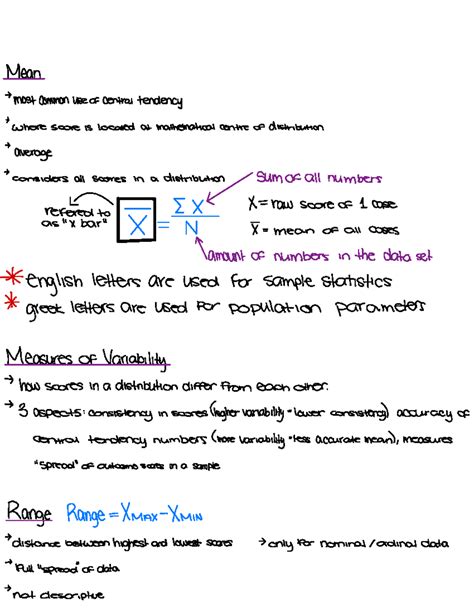 Mean
→ most common use of central tendency
→ where score is located at mathematical centre of distribution
→ average
→ considers all scores in a distribution
sum of all numbers
refered to as "x bar"
X̄ = ΣX / N
X = raw score of 1 case
X̄ = mean of all cases
amount of numbers in the data set
* english letters are used for sample statistics
* greek letters are used for population parameters
Measures of Variability
→ how scores in a distribution differ from each other.
→ 3 aspects: consistency in scores (higher variability = lower consistency) accuracy of
central tendency numbers (more variability = less accurate mean), measures
"spread" of outcome scores in a sample
Range Range = XMAX - XMIN
→ distance between highest and lowest scores → only for nominal / ordinal data
→ Full "spread" of data
→ not descriptive